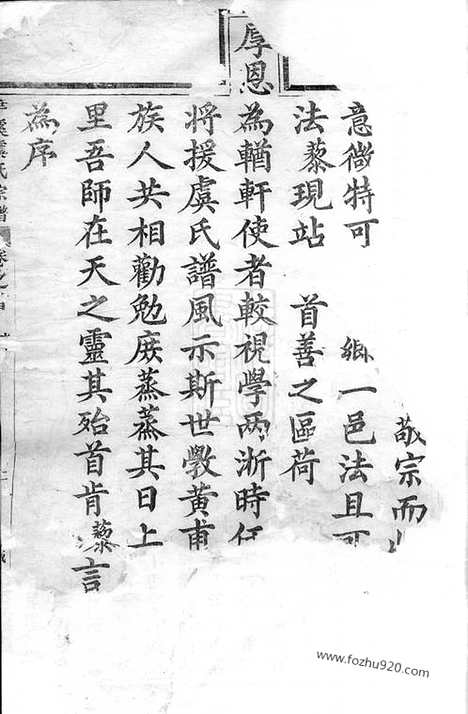 敬宗而
意微特可 鄉一邑法且可
法藜現站 首善之區荷
厚恩
為輶軒使者較視學兩浙時任
將援虞氏譜風示斯世斅黃甫
族人共相勸勉庶蒸蒸其日上
里吾師在天之靈其殆首肯藜言
為序
氏宗譜 卷之首
www.fozhu920.com